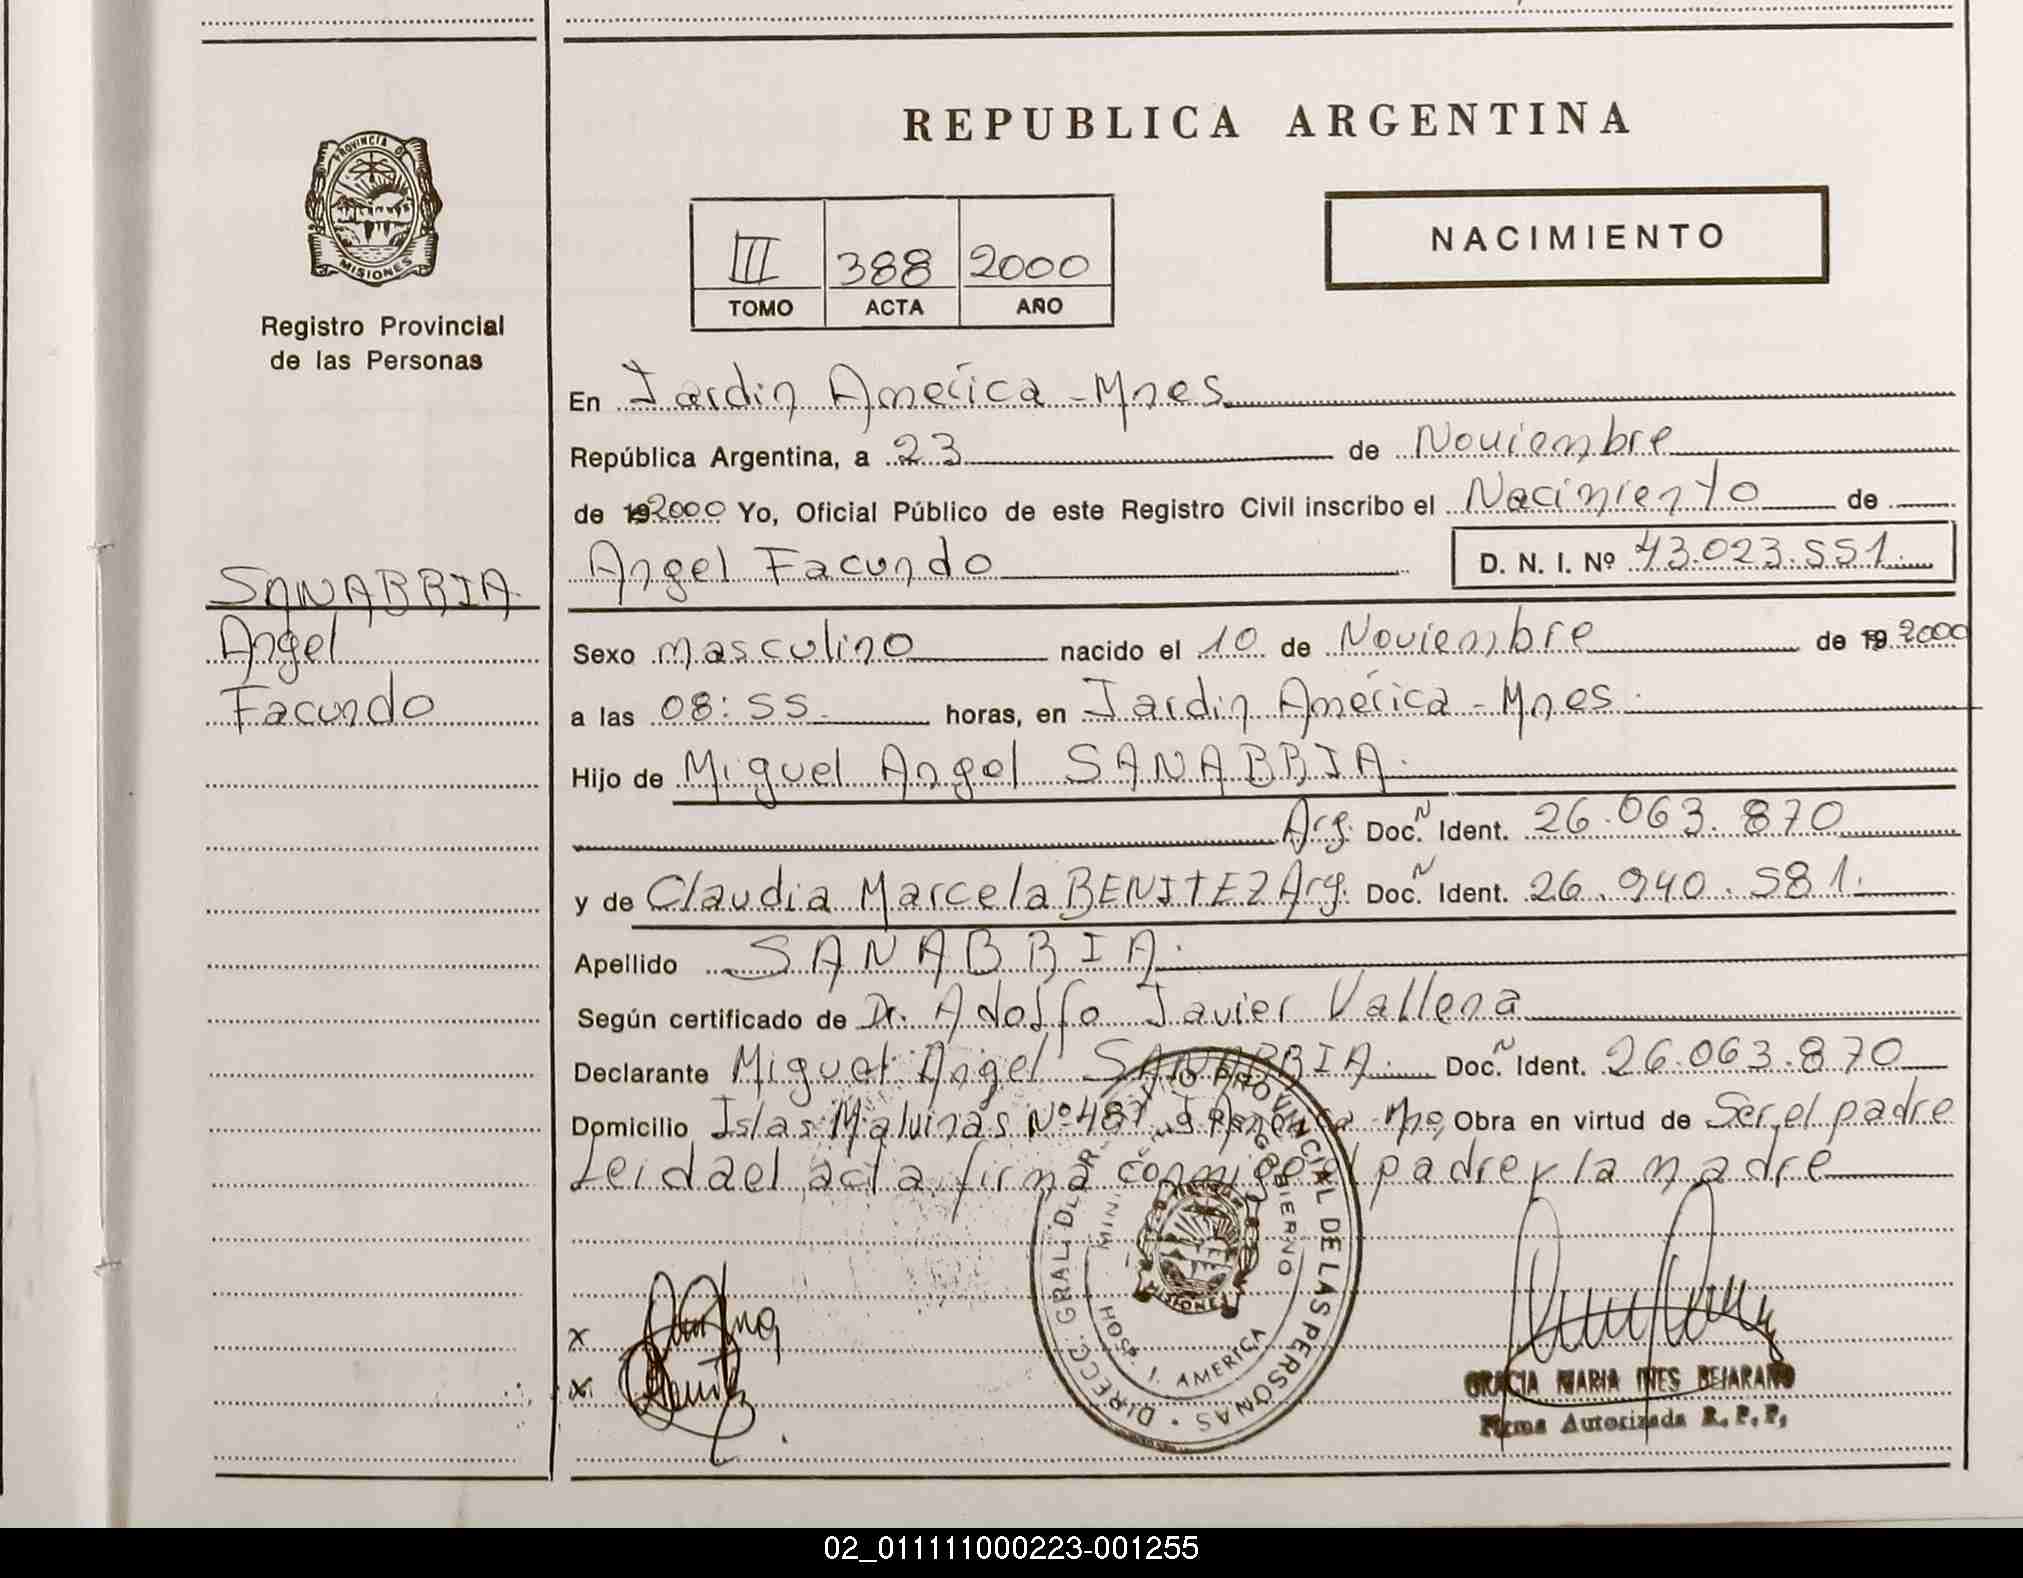 REPUBLICA ARGENTINA
PROVINCIA D
MISIONES
Registro Provincial
de las Personas
III 388 2000
TOMO ACTA AÑO
NACIMIENTO
En Jardin América - Mnes.
República Argentina, a 23 de Noviembre
de 192000 Yo, Oficial Público de este Registro Civil inscribo el Nacimiento de
Angel Facundo D. N. I. Nº 43.023.551.
SANABRIA.
Angel
Facundo
Sexo masculino nacido el 10 de Noviembre de 19 2000
a las 08:55. horas, en Jardin América - Mnes.
Hijo de Miguel Angel SANABRIA.
Arg. Doc. Ident. 26.063.870
y de Claudia Marcela BENITEZ Arg. Doc. Ident. 26.940.581.
Apellido SANABRIA.
Según certificado de Dr. Adolfo Javier Vallena
Declarante Miguel Angel SANABRIA. Doc. Ident. 26.063.870
Domicilio Islas Malvinas Nº 487 Obra en virtud de Ser el padre
Leida el acta firma conmigo el padre y la madre
DIRECC. GRAL. DEL PROVINCIAL DE LAS PERSONAS
GOBIERNO
HOSP. J. AMERICA
MISIONES
x
x
GRACIA MARIA INES BEJARANO
Firma Autorizada R. P. P.
02_011111000223-001255